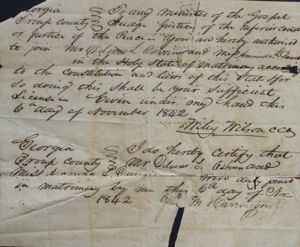 Georgia To any minister of the Gospel
Troup County Judge justice of the Inferior Court
or Justice of the Peace You are hereby authorised
to join Mr and Miss
in the Holy State of Matrimony
to the Constitution and laws of this State for
So doing this shall be your Sufficient
License Given under my hand this
6th day of November 1842
Wiley Wilson CCO
Georgia I do hereby certify that
Troup County Mr
Miss were duly joined
in matrimony by me this 6th day of Nov
1842 M Harrington